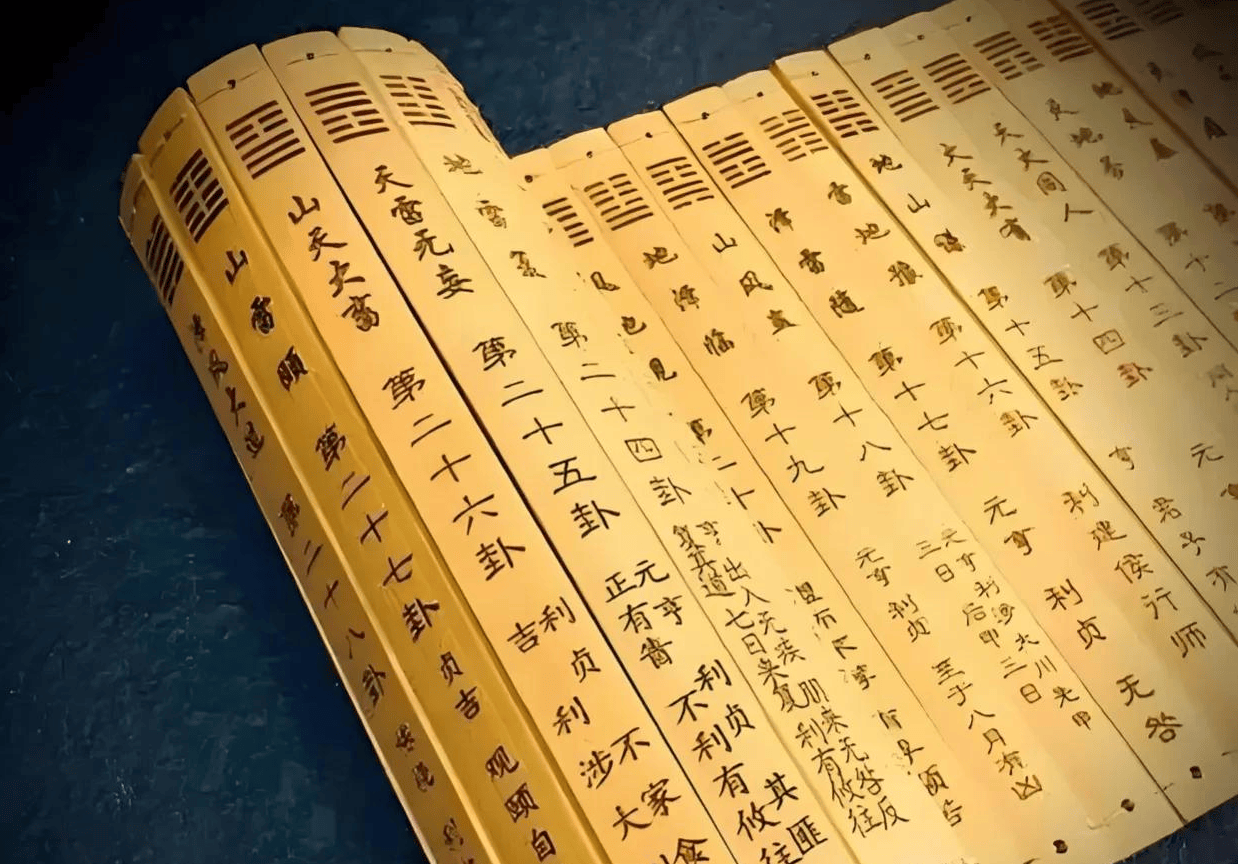 第十二
天火同人 第十三卦
火天大有 第十四卦 元
地山 第十五卦 亨 君子有
雷地豫 第十六卦 利建侯行师
泽雷随 第十七卦 元亨 利贞 无咎
山风蛊 第十八卦 元亨利涉大川先甲
三日 后甲三日
地泽临 第十九卦 元亨利贞 至于八月有凶
第二十卦
地雷复 第二十四卦 亨 出入无疾 朋来无咎反
复其道七日来复 利有攸往
天雷无妄 第二十五卦 元亨 利贞 其匪
正有眚 不利有攸往
山天大畜 第二十六卦 利贞 不家食
吉 利涉大
山雷颐 第二十七卦 贞吉 观颐自
第二十八卦